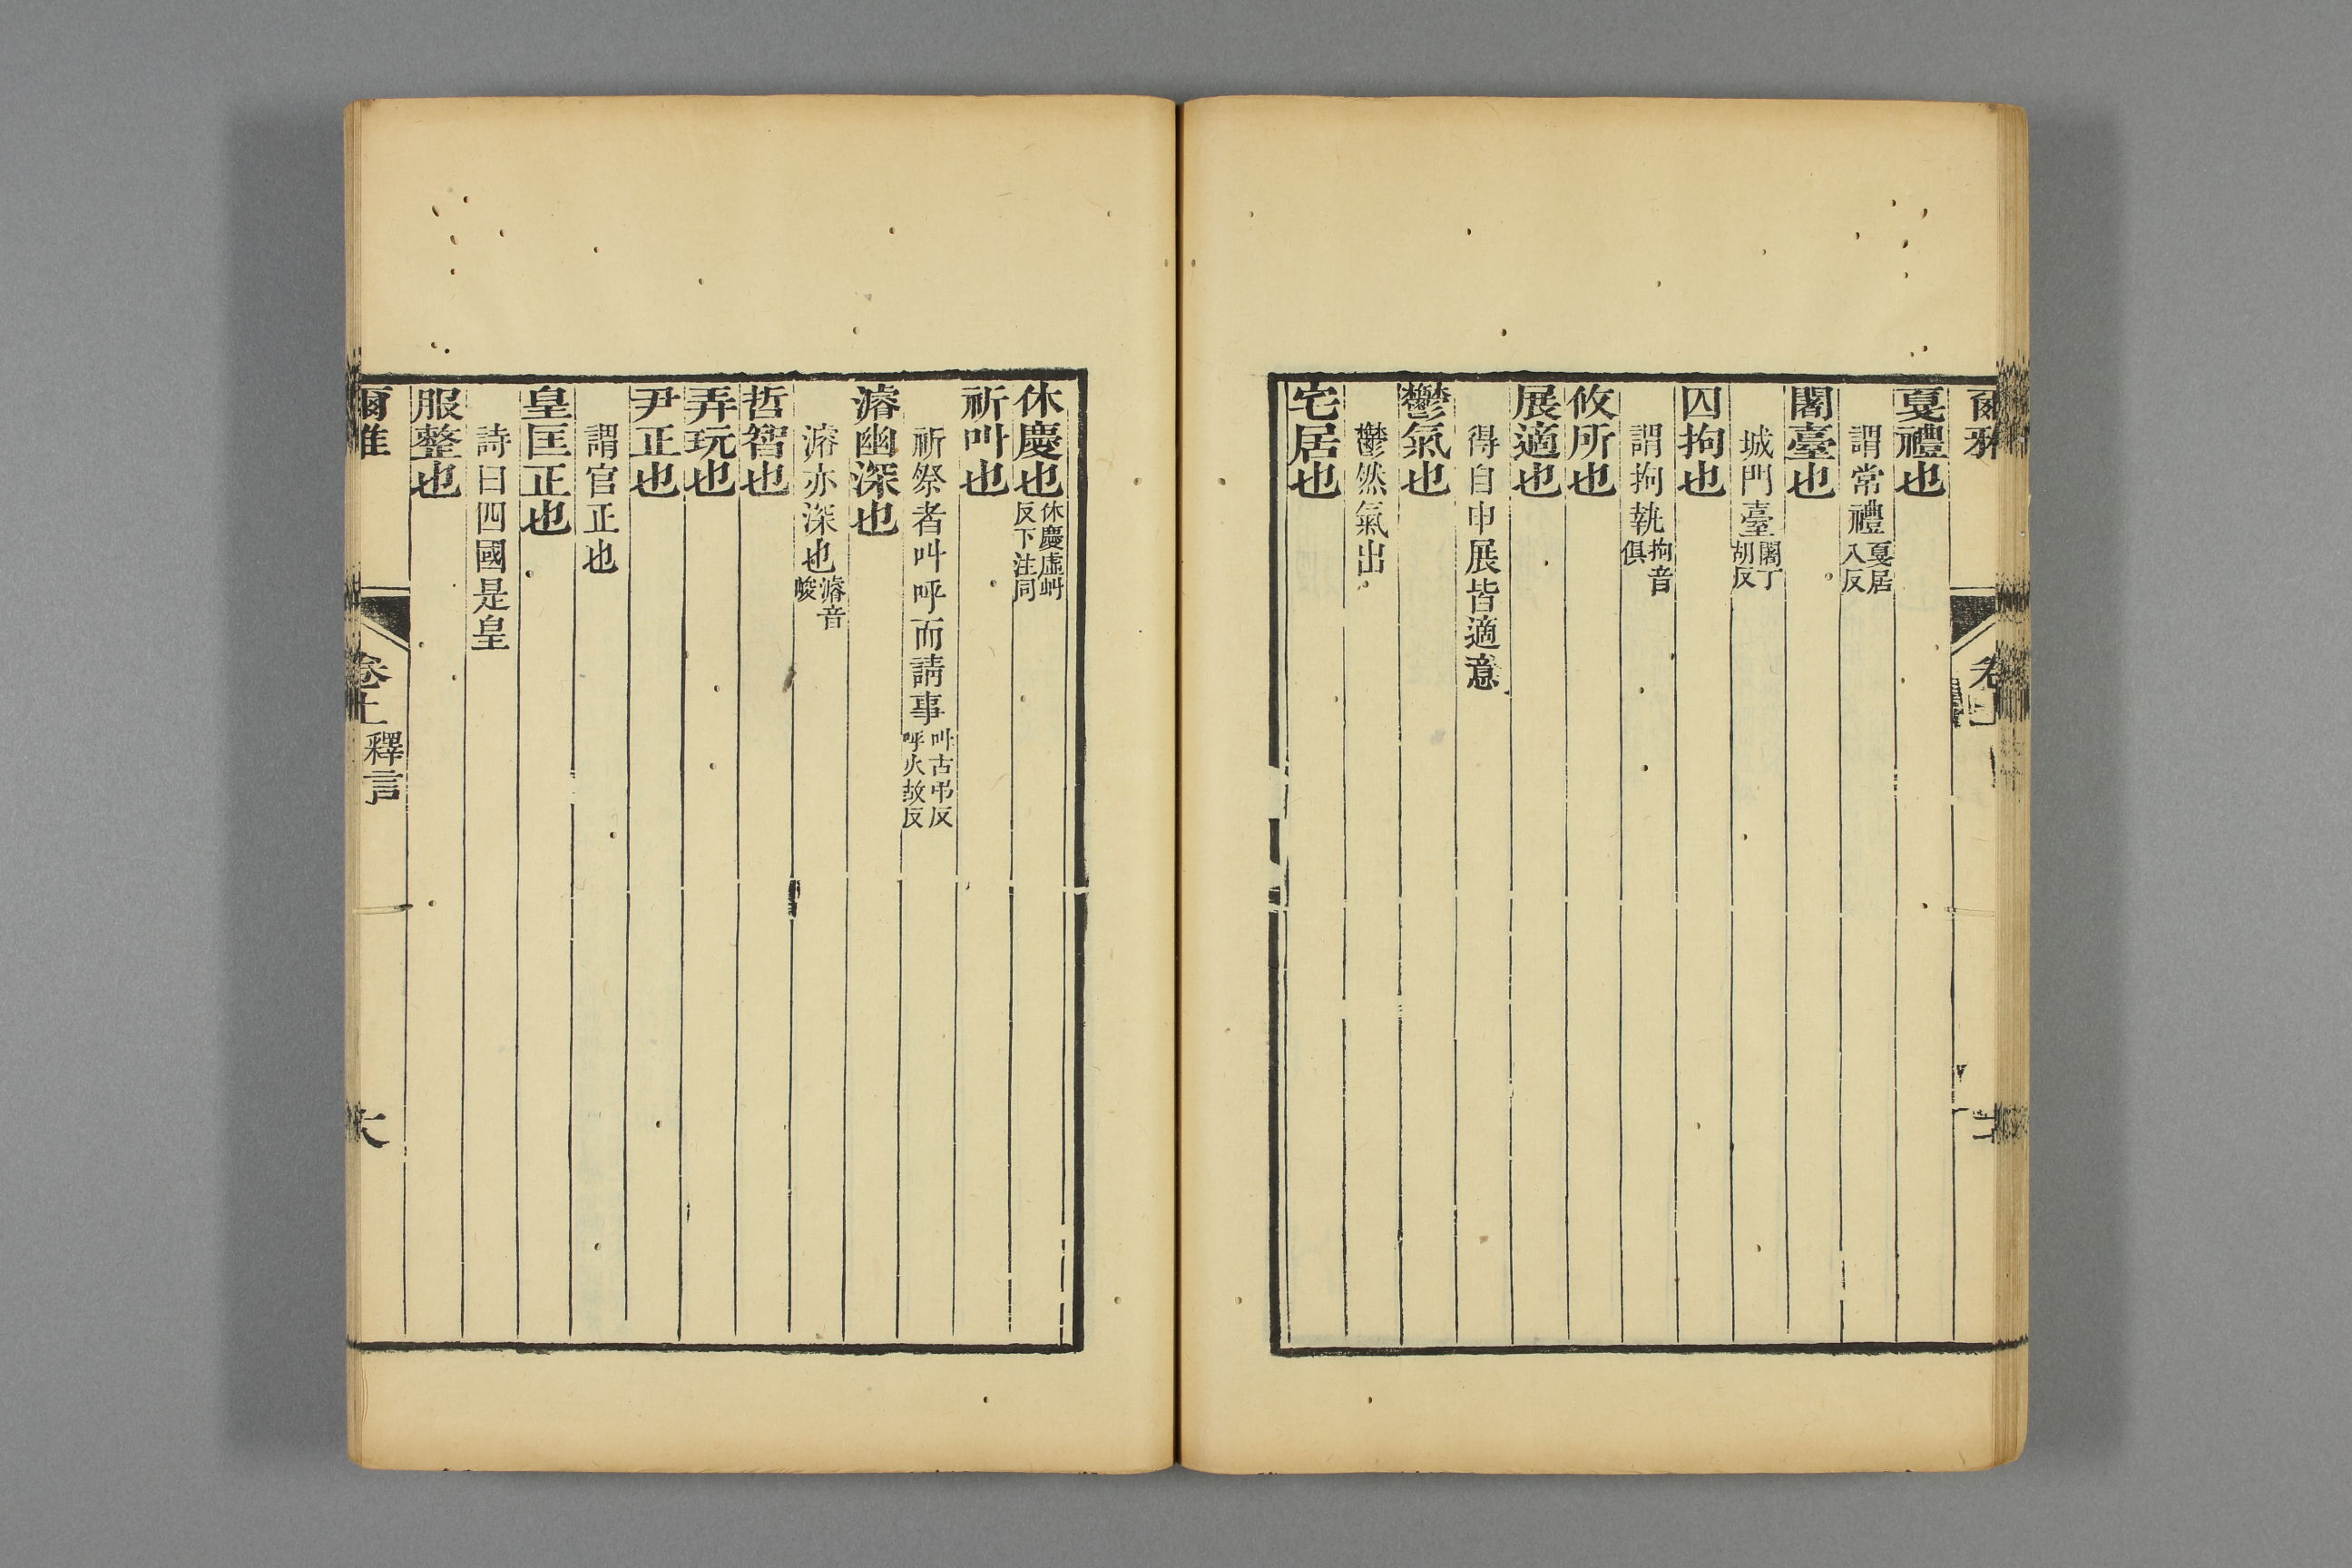 爾雅
戛禮也
謂常禮戛居入反
闍臺也
城門臺闍丁胡反
囚拘也
謂拘執拘音俱
攸所也
展適也
得自申展皆適意
鬱氣也
鬱然氣出
宅居也
休慶也休慶虛虯反下注同
祈叫也
祈祭者叫呼而請事叫古弔反呼火故反
濬幽深也
濬亦深也濬音峻
哲智也
弄玩也
尹正也
謂官正也
皇匡正也
詩曰四國是皇
服整也
爾雅 卷上 釋言